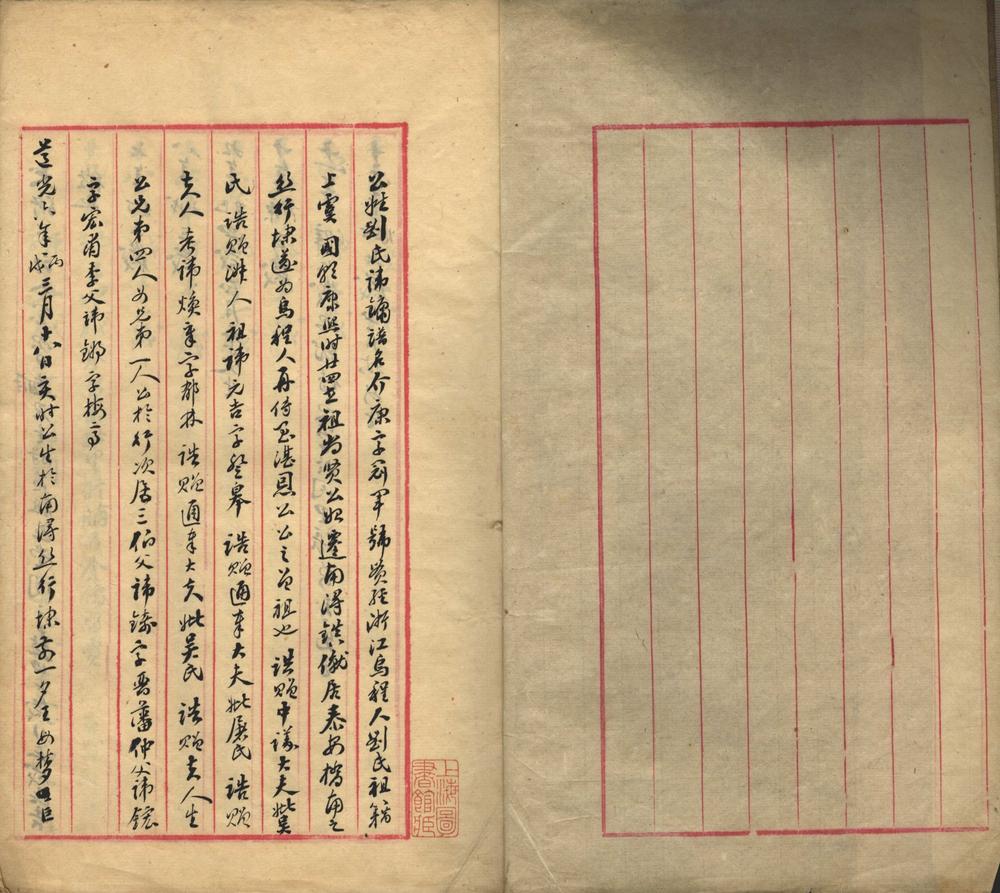 公姓劉氏諱鏞譜名介康字冠軍號貫經浙江烏程人劉氏祖籍
上虞國朝康熙時廿四世祖尚賢公始遷南潯鎮僦居泰安橋南之
絲行埭遂為烏程人再傳至湛恩公公之曾祖也誥贈中議大夫妣吳
氏誥贈淑人祖諱元吉字聲皋誥贈通奉大夫妣屠氏誥贈
夫人考諱煥章字郁林誥贈通奉大夫妣吳氏誥贈夫人生
公兄弟四人女兄弟一人公於行次居三伯父諱鑄字晉藩仲父諱鋐
字宏甫季父諱鏘字梅亭
道光六年丙戌三月十八日亥時公生於南潯絲行埭前一夕王母夢巨
上海圖書館藏